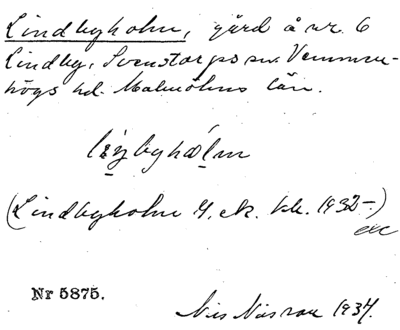 Lindbyholm, gård å nr. 6
Lindby, Svenstorps sn. Vemmen-
högs hd. Malmöhus län.
byhólm
(Lindbyholm G. ek. kk. 1932-)
Nr 5875.
Nils 1934.